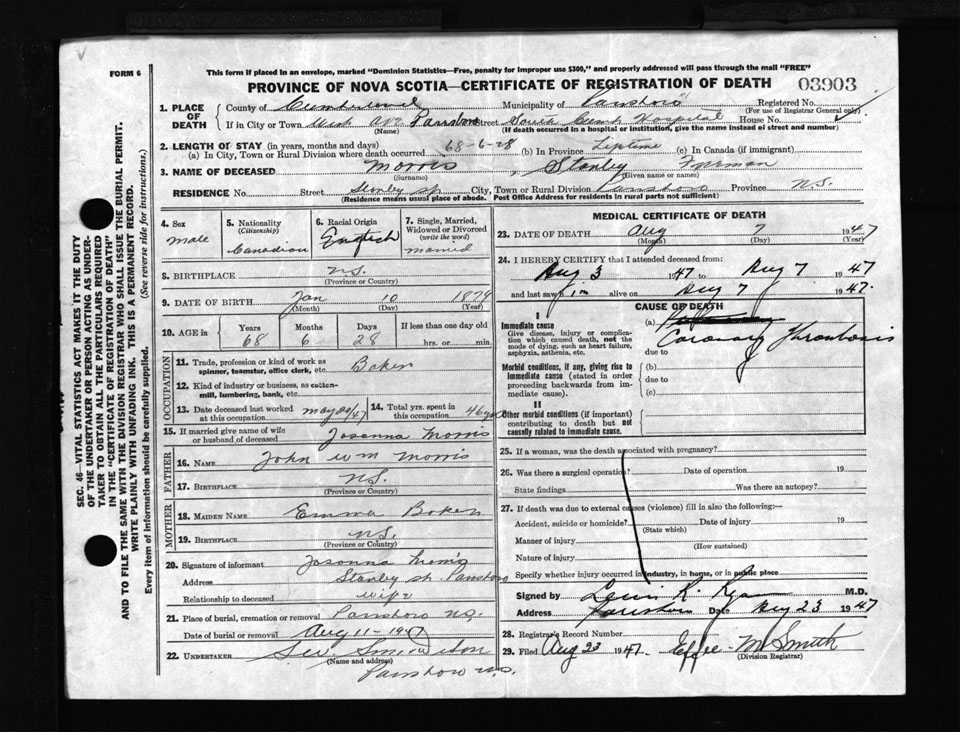 FORM 6
This form if placed in an envelope, marked "Dominion Statistics—Free, penalty for improper use $300," and properly addressed will pass through the mail "FREE"
PROVINCE OF NOVA SCOTIA—CERTIFICATE OF REGISTRATION OF DEATH 03903
1. PLACE OF DEATH
County of Cumberland Municipality of Parrsboro Registered No.
(For use of Registrar General only)
If in City or Town West Ave Parrsboro Street South Hospital House No.
(Name) (If death occurred in a hospital or institution, give the name instead of street and number)
2. LENGTH OF STAY (in years, months and days)
(a) In City, Town or Rural Division where death occurred 68-6-28 (b) In Province Lifetime (c) In Canada (if immigrant)
3. NAME OF DECEASED Morris, Stanley
(Surname) (Given name or names)
RESIDENCE No. Street Stanley st City, Town or Rural Division Parrsboro Province N.S.
(Residence means usual place of abode. Post Office Address for residents in rural parts not sufficient)
4. Sex
Male
5. Nationality
(Citizenship)
Canadian
6. Racial Origin
English
7. Single, Married, Widowed or Divorced
(write the word)
married
8. BIRTHPLACE N.S.
(Province or Country)
9. DATE OF BIRTH Jan 10 1879
(Month) (Day) (Year)
10. AGE in Years Months Days If less than one day old
68 6 28 hrs. or min.
OCCUPATION
11. Trade, profession or kind of work as
spinner, teamster, office clerk, etc. Baker
12. Kind of industry or business, as cotton-
mill, lumbering, bank, etc.
13. Date deceased last worked
at this occupation May 20/47
14. Total yrs. spent in
this occupation 46 yrs
15. If married give name of wife
or husband of deceased Josanna Morris
FATHER
16. NAME John Wm Morris
17. BIRTHPLACE N.S.
(Province or Country)
MOTHER
18. MAIDEN NAME Emma Baker
19. BIRTHPLACE N.S.
(Province or Country)
20. Signature of informant Josanna Morris
Address Stanley st. Parrsboro
Relationship to deceased wife
21. Place of burial, cremation or removal Parrsboro N.S.
Date of burial or removal Aug 11 - 1947
22. UNDERTAKER
(Name and address)
Parrsboro N.S.
MEDICAL CERTIFICATE OF DEATH
23. DATE OF DEATH Aug 7 1947
(Month) (Day) (Year)
24. I HEREBY CERTIFY that I attended deceased from:
Aug 3 1947 to Aug 7 1947
and last saw him alive on Aug 7 1947.
CAUSE OF DEATH
I
Immediate cause
Give disease, injury or complica-
tion which caused death, not the
mode of dying, such as heart failure,
asphyxia, asthenia, etc.
(a) Coronary Thrombosis
due to
Morbid conditions, if any, giving rise to
immediate cause (stated in order
proceeding backwards from im-
mediate cause).
(b)
due to
(c)
II
Other morbid conditions (if important)
contributing to death but not
causally related to immediate cause.
25. If a woman, was the death associated with pregnancy?
26. Was there a surgical operation? Date of operation 19
State findings Was there an autopsy?
27. If death was due to external causes (violence) fill in also the following:—
Accident, suicide or homicide? Date of injury 19
(State which)
Manner of injury
(How sustained)
Nature of injury
Specify whether injury occurred in industry, in home, or in public place
Signed by M.D.
Address Parrsboro Date Aug 23 1947
28. Registrar's Record Number
29. Filed Aug 23 1947. Effie M Smith
(Division Registrar)
SEC. 46—VITAL STATISTICS ACT MAKES IT THE DUTY
OF THE UNDERTAKER OR PERSON ACTING AS UNDER-
TAKER TO OBTAIN ALL THE PARTICULARS REQUIRED
IN THE "CERTIFICATE OF REGISTRATION OF DEATH"
AND TO FILE THE SAME WITH THE DIVISION REGISTRAR WHO SHALL ISSUE THE BURIAL PERMIT.
WRITE PLAINLY WITH UNFADING INK. THIS IS A PERMANENT RECORD.
Every item of information should be carefully supplied. (See reverse side for instructions.)